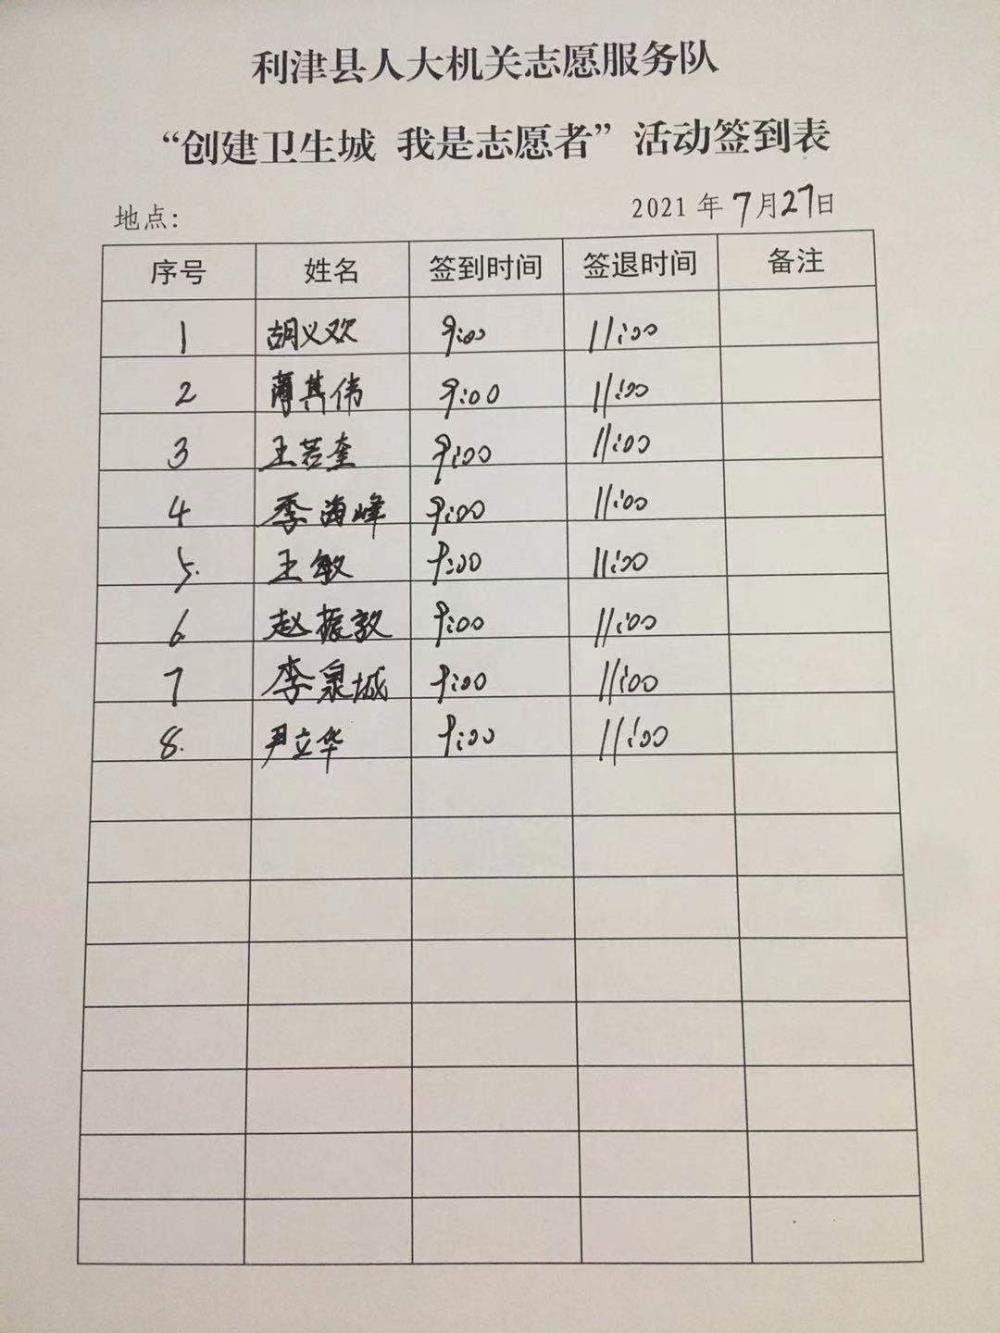 利津县人大机关志愿服务队
“创建卫生城 我是志愿者”活动签到表
地点: 2021年7月27日
序号 姓名 签到时间 签退时间 备注
1 胡义欢 9:00 11:00
2 薄其伟 9:00 11:00
3 王若奎 9:00 11:00
4 李海峰 9:00 11:00
5. 王敏 9:00 11:00
6. 赵振敦 9:00 11:00
7 李泉城 9:00 11:00
8. 尹立华 9:00 11:00